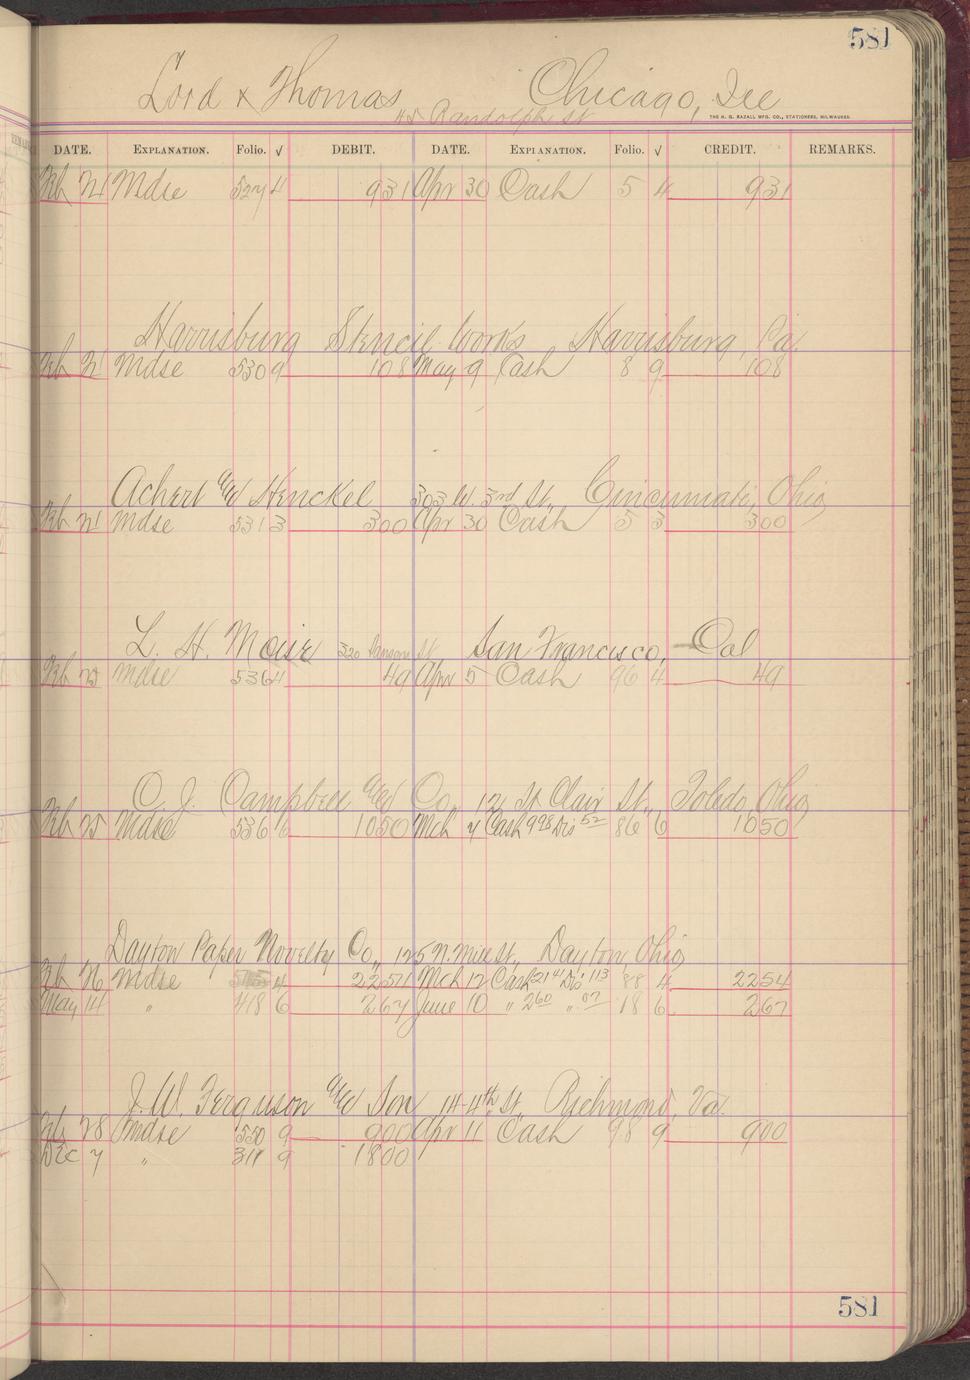 581
Lord & Thomas Chicago, Ill
45 Randolph St
THE H. G. RAZALL MFG. CO., STATIONERS, MILWAUKEE.
DATE. EXPLANATION. Folio. √ DEBIT. DATE. EXPLANATION. Folio. √ CREDIT. REMARKS.
Feb 21 Mdse 527 4 931 Apr 30 Cash 5 4 931
Harrisburg Stencil Works Harrisburg, Pa.
Feb 21 Mdse 530 9 108 May 9 Cash 8 9 108
Achert & Henckel 303 W. 3rd St., Cincinnati, Ohio
Feb 21 Mdse 531 3 300 Apr 30 Cash 5 3 300
L. H. Moise 320 Sansom St San Francisco, Cal
Feb 25 Mdse 536 4 49 Apr 5 Cash 96 4 49
C. J. Campbell & Co., 12 St Clair St., Toledo, Ohio
Feb 25 Mdse 536 6 1050 Mch 7 Cash 998 Dis 52 86 6 1050
Dayton Paper Novelty Co., 125 N. Mill St., Dayton, Ohio
Feb 26 Mdse 4 Mch 12 Cash 2141 Dis 113 88 4 2254
May 14 " 418 6 267 June 10 " 260 " 07 18 6 267
J. W. Ferguson & Son 14-4th St., Richmond, Va.
Feb 28 Mdse 550 9 900 Apr 11 Cash 98 9 900
Dec 7 " 311 9 1800
581